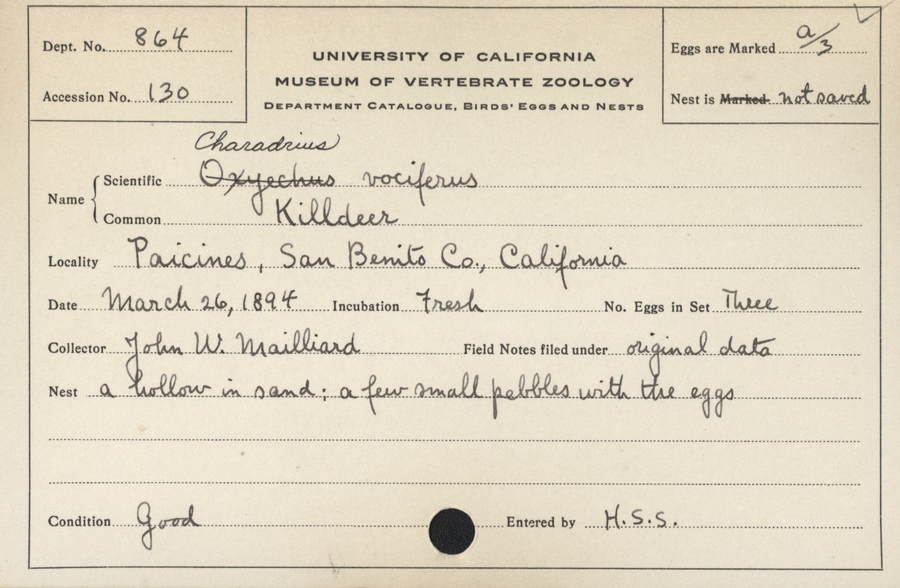 Dept. No. 864
Accession No. 130
UNIVERSITY OF CALIFORNIA
MUSEUM OF VERTEBRATE ZOOLOGY
DEPARTMENT CATALOGUE, BIRDS' EGGS AND NESTS
Eggs are Marked a/3
Nest is Marked not saved
Charadrius
Name
Scientific Oxyechus vociferus
Common Killdeer
Locality Paicines, San Benito Co., California
Date March 26, 1894 Incubation Fresh No. Eggs in Set Three
Collector John W. Mailliard Field Notes filed under original data
Nest a hollow in sand; a few small pebbles with the eggs
Condition Good Entered by H.S.S.